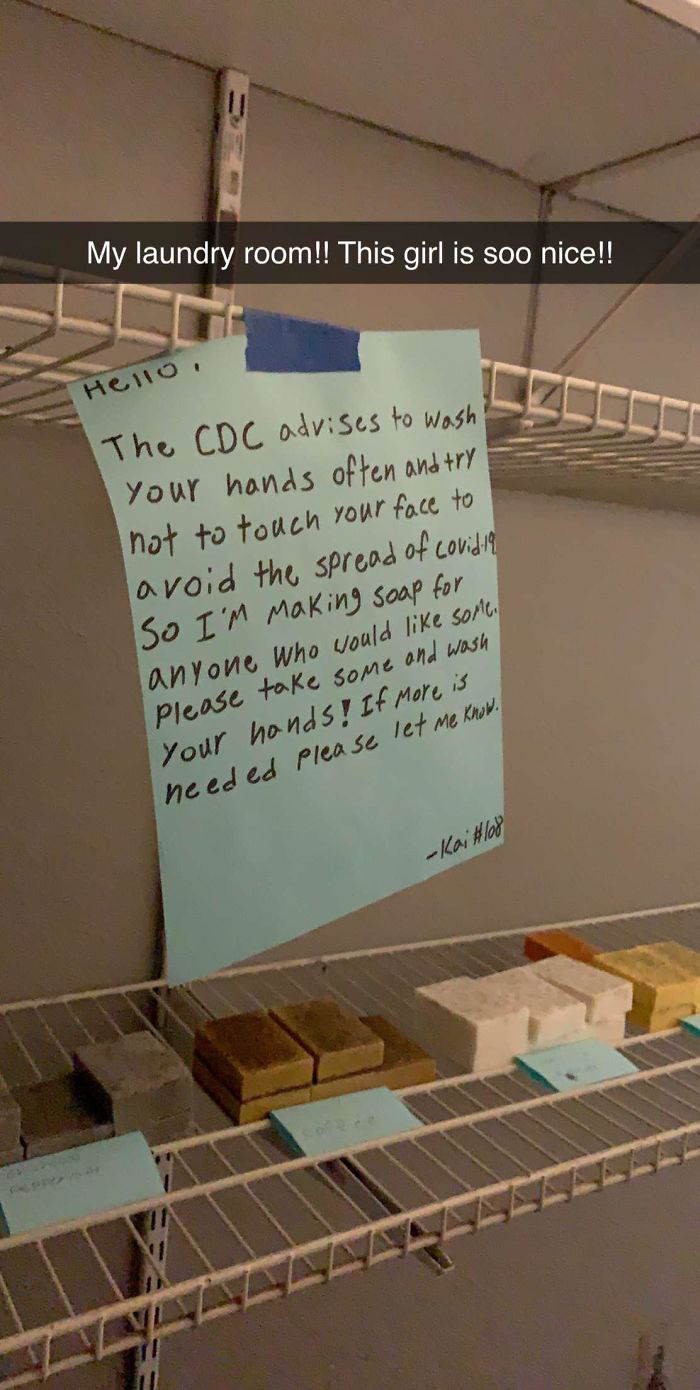 My laundry room!! This girl is soo nice!!
Hello,
The CDC advises to wash
your hands often and try
not to touch your face to
avoid the spread of covid-19
So I'M Making soap for
anyone who would like some.
Please take some and wash
your hands! If More is
needed Please let Me Know.
-Kai #108
coffee
peppermint